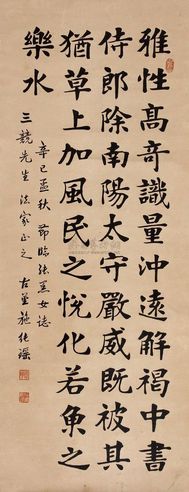 雅性高奇識量沖遠解褐中書
侍郎除南陽太守嚴威既被其
猶草上加風民之悅化若魚之
樂水
辛巳孟秋節臨張黑女誌
三競先生法家正之